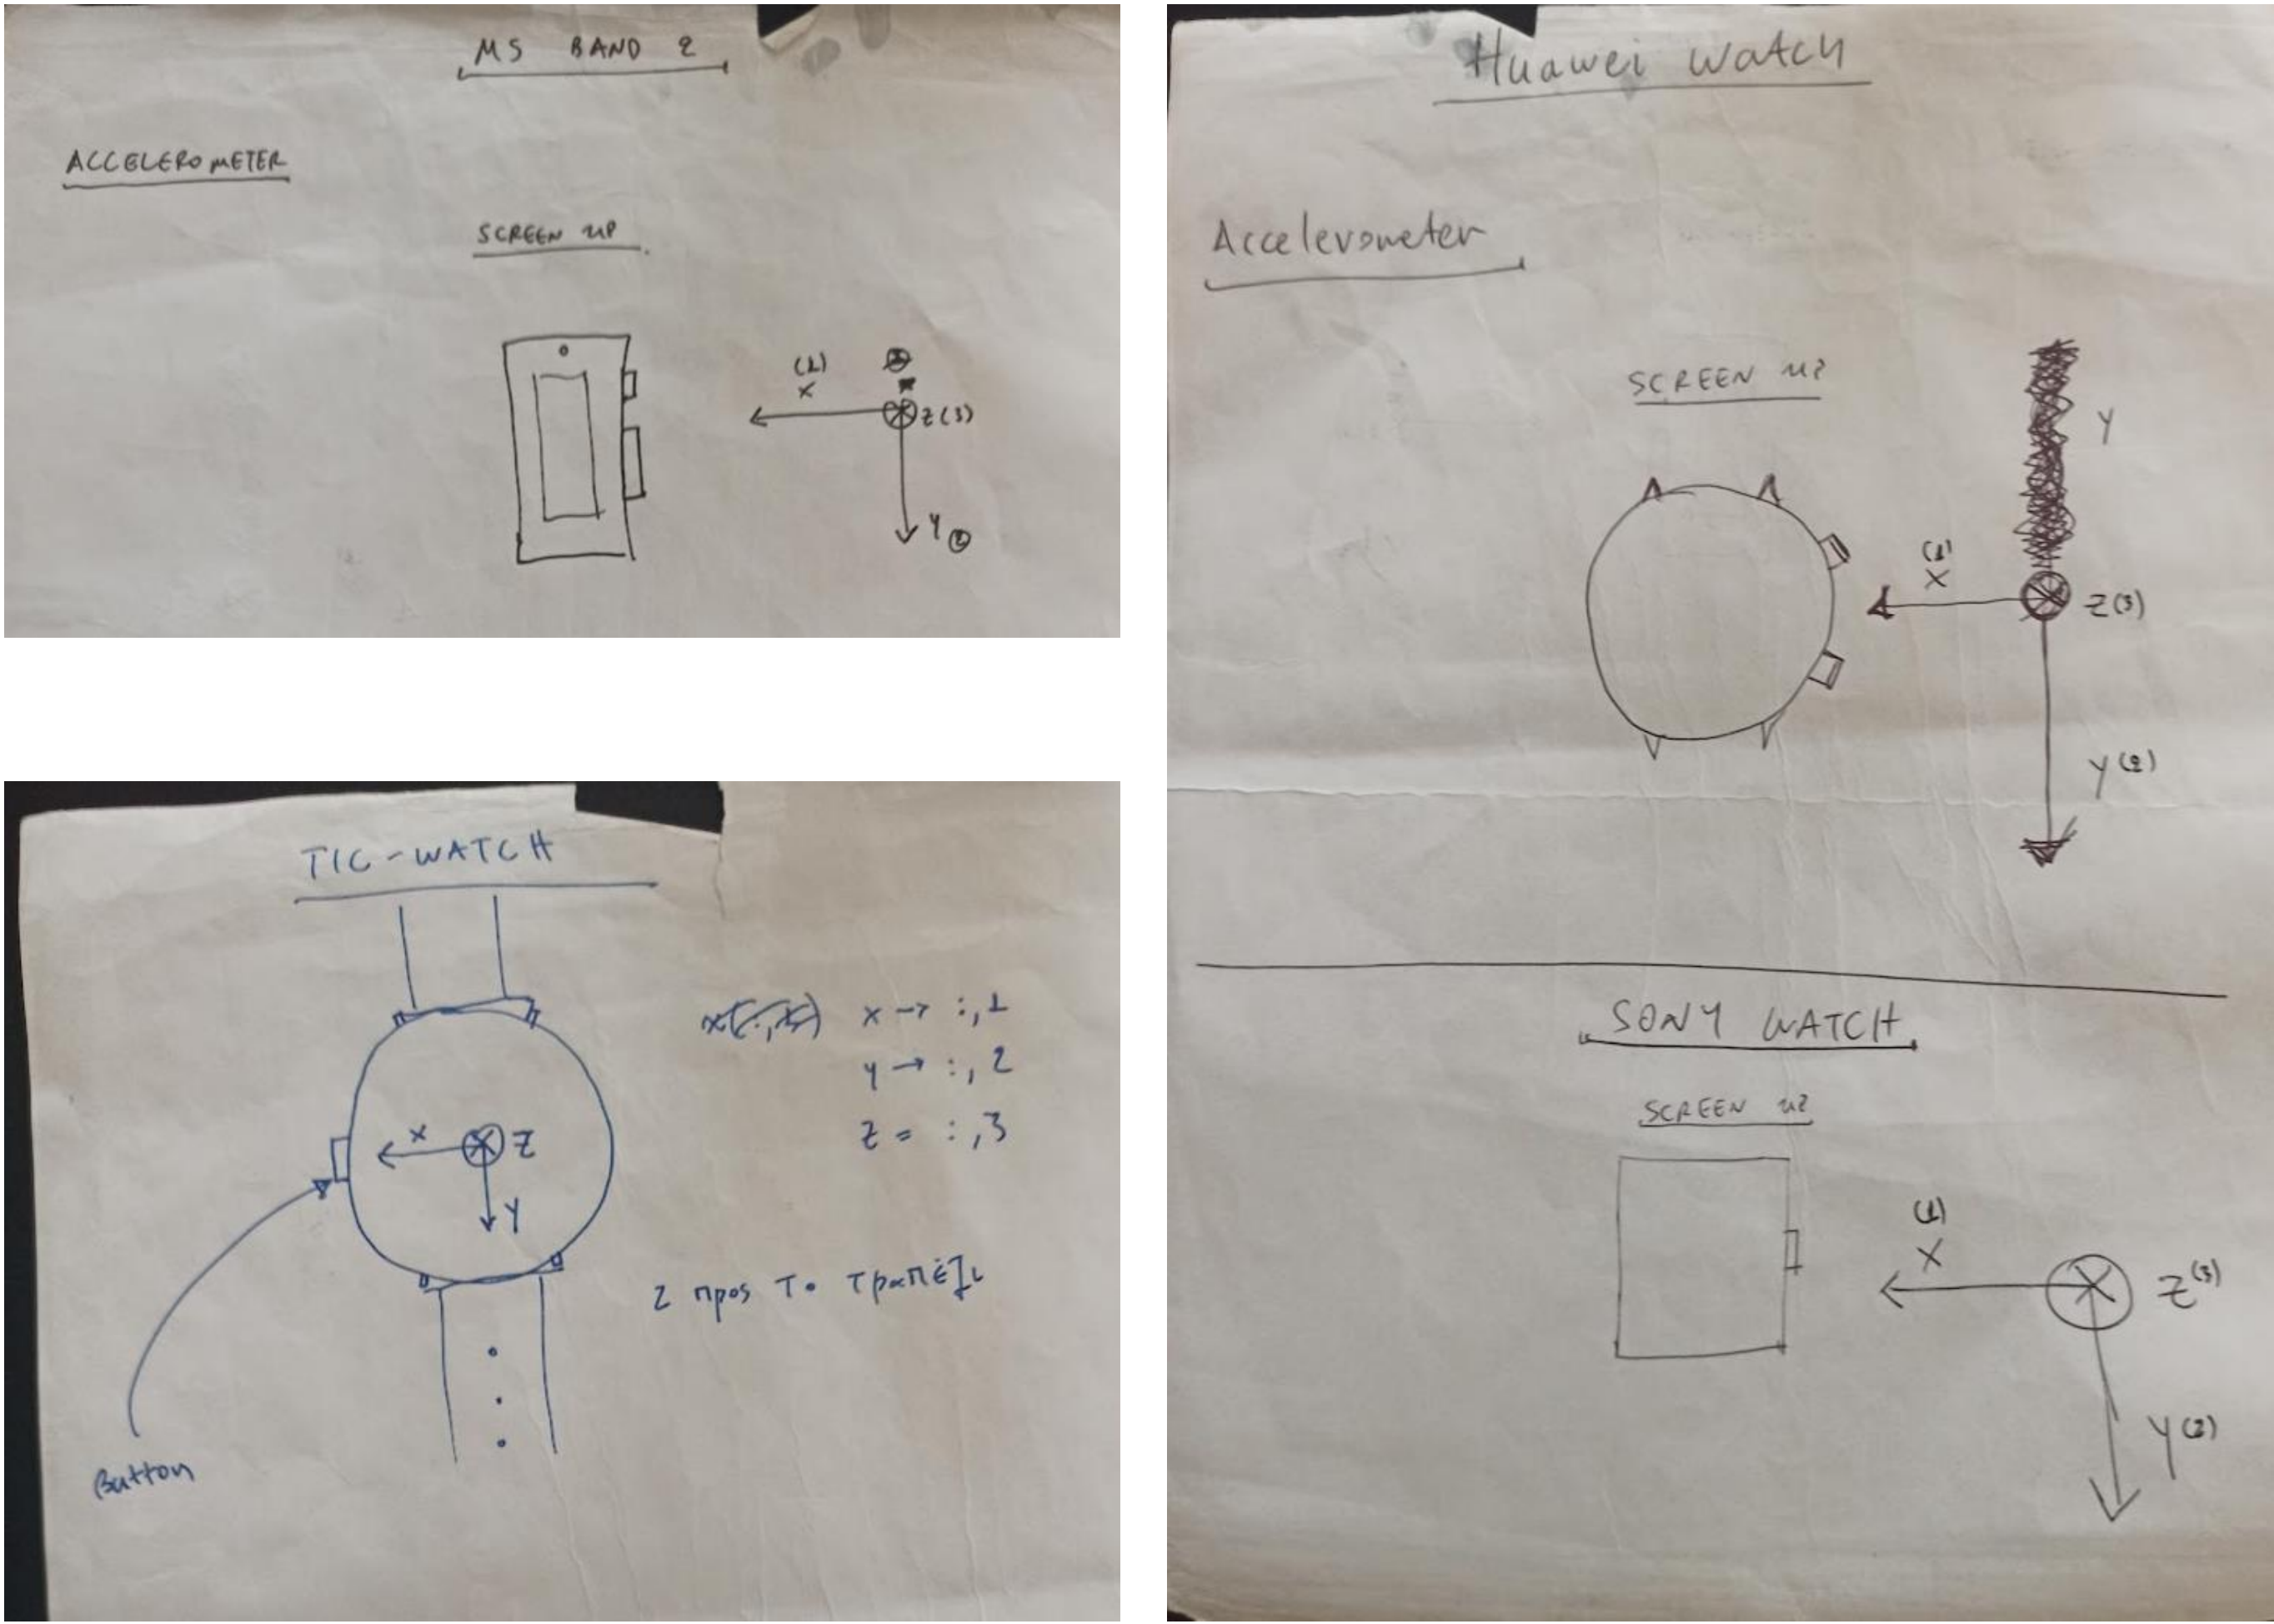 MS BAND 2
ACCELEROMETER
SCREEN UP
(1)
X
Z(3)
Y ②
TIC-WATCH
x → :,1
y → :,2
z = :,3
X
Z
Y
z προς το τραπέζι
Button
Huawei Watch
Accelerometer
SCREEN UP
Y
(1)
X
Z(3)
Y(2)
SONY WATCH
SCREEN UP
(1)
X
Z(3)
Y(2)